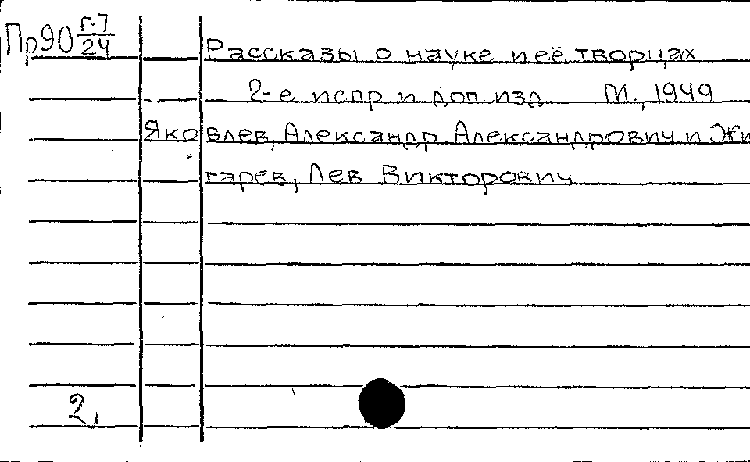 Пр90 г.7
24
Рассказы о науке и её творцах
2-е испр и доп изд М., 1949
Яковлев, Александр Александрович и Жи
гарев, Лев Викторович
2.